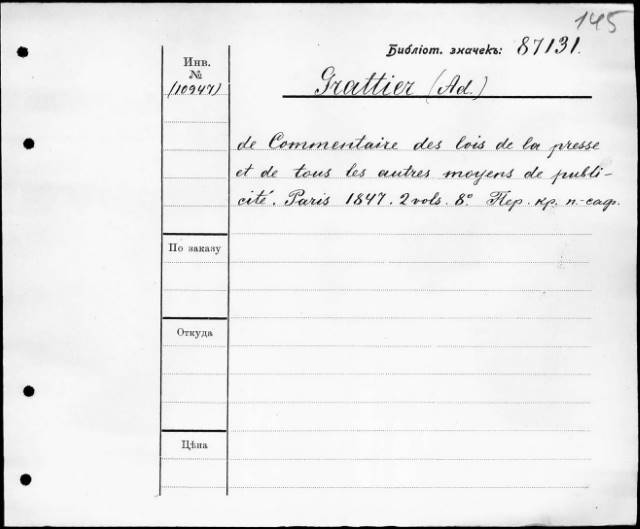 145
Библіот. значекъ: 87131.
Инв.
№
(10947)
Grattier (Ad.)
de Commentaire des lois de la presse
et de tous les autres moyens de publi-
cité. Paris 1847. 2 vols. 8° Пер. кр. п.-саф.
По заказу
Откуда
Цѣна